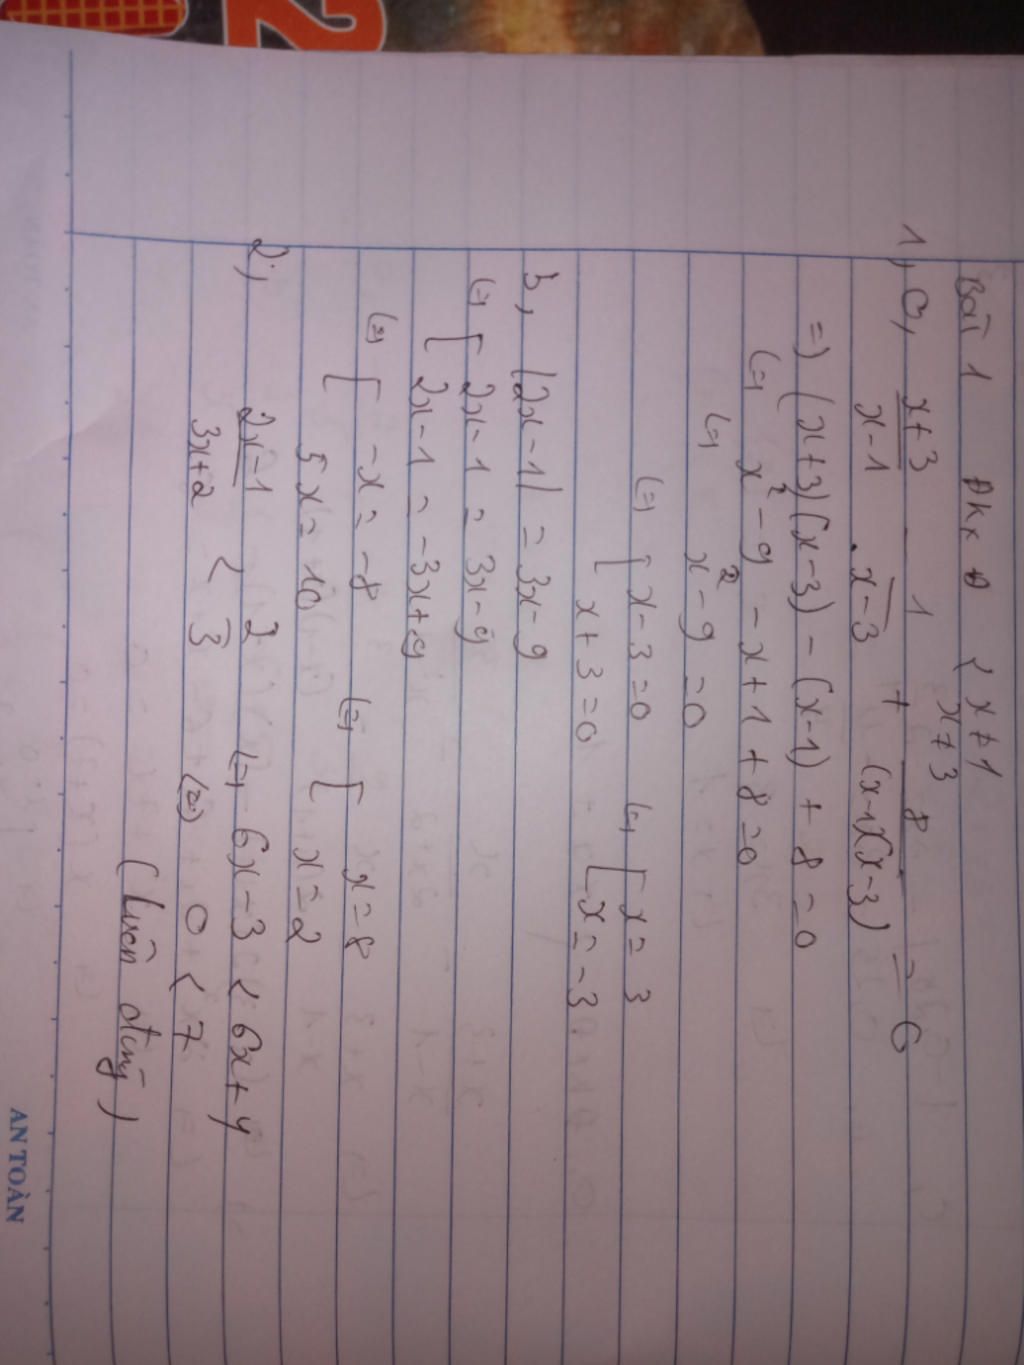 Bài 1 ĐKXĐ { x ≠ 1
x ≠ 3
1, a, (x+3)/(x-1) - 1/(x-3) + 8/((x-1)(x-3)) = 0
=> (x+3)(x-3) - (x-1) + 8 = 0
(=) x² - 9 - x + 1 + 8 = 0
(=) x² - 9 = 0
(=) [ x - 3 = 0 (=) [ x = 3
x + 3 = 0 x = -3
b, |2x-1| = 3x-9
(=) [ 2x-1 = 3x-9
2x-1 = -3x+9
(=) [ -x = -8 (=) [ x = 8
5x = 10 x = 2
2, (2x-1)/(3x+2) < 2/3 (=) 6x-3 < 6x+4
(=) 0 < 7
(Luôn đúng)
2
AN TOÀN